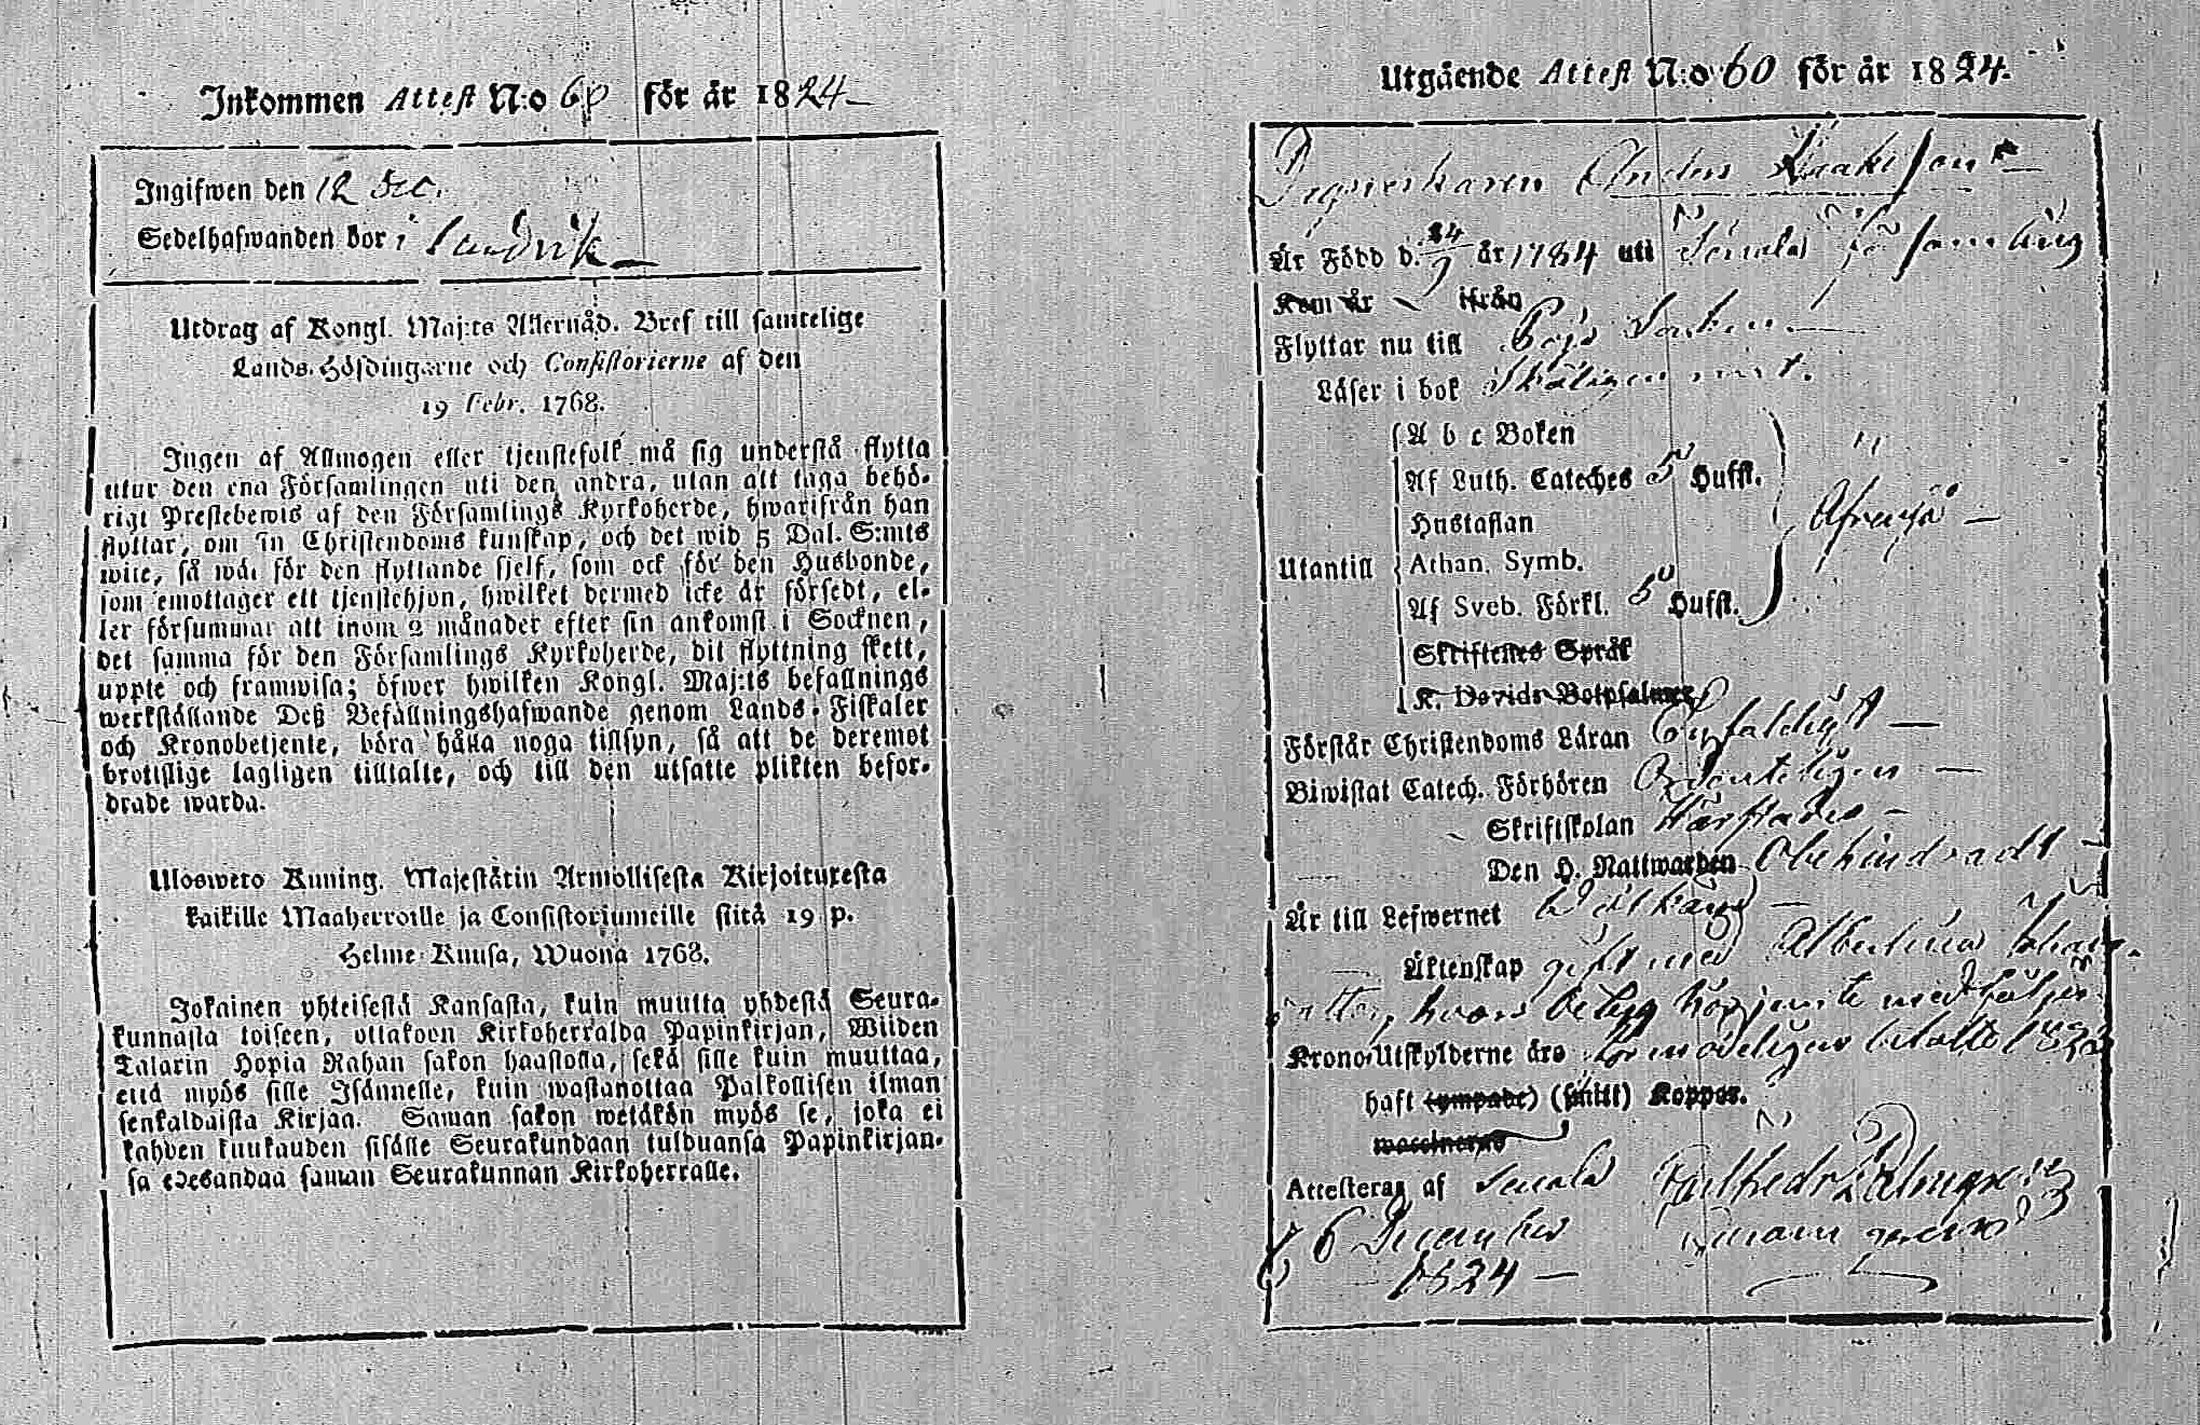 Inkommen Attest N:o 60 för år 1824
Ingifwen den 12 Dec.
Sedelhafwanden bor i Sandvik
Utdrag af Kongl. Maj:ts Allernåd. Bref till samtelige
Lands-Höfdingarne och Consistorierne af den
19 Febr. 1768.
Ingen af Allmogen eller tjenstefolk må sig understå flytta
utur den ena Församlingen uti den andra, utan att taga behö-
rigt Prestebewis af den Församlings Kyrkoherde, hwarifrån han
flyttar, om sin Christendoms kunskap, och det wid 5 Dal. S:mts
wite, så wäl för den flyttande sjelf, som ock för den Husbonde,
som emottager ett tjenstehjon, hwilket dermed icke är försedt, el-
ler försummar att inom 2 månader efter sin ankomst i Socknen,
det samma för den Församlings Kyrkoherde, dit flyttning skett,
uppte och framwisa; öfwer hwilken Kongl. Maj:ts befallnings
werkställande Deß Befallningshafwande genom Lands-Fiskaler
och Kronobetjente, böra hålla noga tillsyn, så att de deremot
brottslige lagligen tilltalte, och till den utsatte plikten befor-
drade warda.
Ulosweto Kuning. Majestätin Armollisesta Kirjoituxesta
kaikille Maaherroille ja Consistoriumeille siitä 19 p.
Helme-Kuusa, Wuona 1768.
Jokainen yhteisestä Kansasta, kuin muutta yhdestä Seura-
kunnasta toiseen, ottakoon Kirkoherralda Papinkirjan, Wiiden
Talarin Hopia Rahan sakon haastolla, sekä sille kuin muuttaa,
että myös sille Isännelle, kuin wastanottaa Palkollisen ilman
senkaldaista Kirjaa. Saman sakon wetäkön myös se, joka ei
kahden kuukauden sisälle Seurakundaan tulduansa Papinkirjan-
sa edesandaa saman Seurakunnan Kirkoherralle.
Utgående Attest N:o 60 för år 1824.
Anders
Är Född d. 24/9 år 1784 uti Tenala församling
Kom år ifrån
Flyttar nu till Bojo Socken
Läser i bok
A b c Boken
Af Luth. Cateches 5 Hufst.
Hustaflan
Utantill Athan. Symb.
Af Sveb. Förkl. 5 Hufst.
Skriftenes Språk
K. Davids Botpsalmer
Förstår Christendoms Läran Enfaldigt
Biwistat Catech. Förhören Ordenteligen
Skriftskolan
Den H. Nattwarden Obehindradt
Är till Lefwernet Wälkänd
Äktenskap gift med Albertina
hvars betyg härjemte medföljer
Krono-Utskylderne äro betalte
haft (ympade) (smitt) Koppor.
Attesteras af Tenala
d 6 December
1824